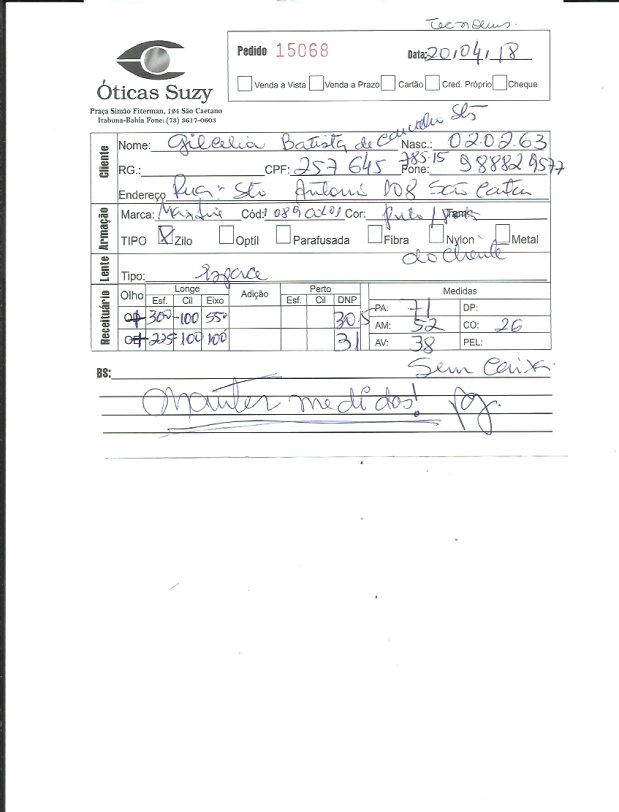 Pedido 15068 Data: 20/04/18
Venda a Vista Venda a Prazo Cartão Cred. Próprio Cheque
Óticas Suzy
Praça Simão Fiterman, 124 São Caetano
Itabuna-Bahia Fone: (73) 3617-0603
Cliente
Nome: Batista de Nasc.: 02.02.63
RG.: CPF: 257 645 785-15 Fone: 98882 9577
Endereço Rua: Sto Antonio 108 São
Armação
Marca: Cód: Cor:
TIPO X Zilo Optíl Parafusada Fibra Nylon Metal
do cliente
Lente
Tipo:
Receituário
Olho Longe Adição Perto DNP Medidas
Esf. Cil Eixo Esf. Cil
300 -100 55° 30,5 PA: 71 DP:
AM: 52 CO: 26
225 100 100 31 AV: 38 PEL:
BS: Sem
Manter medidas!